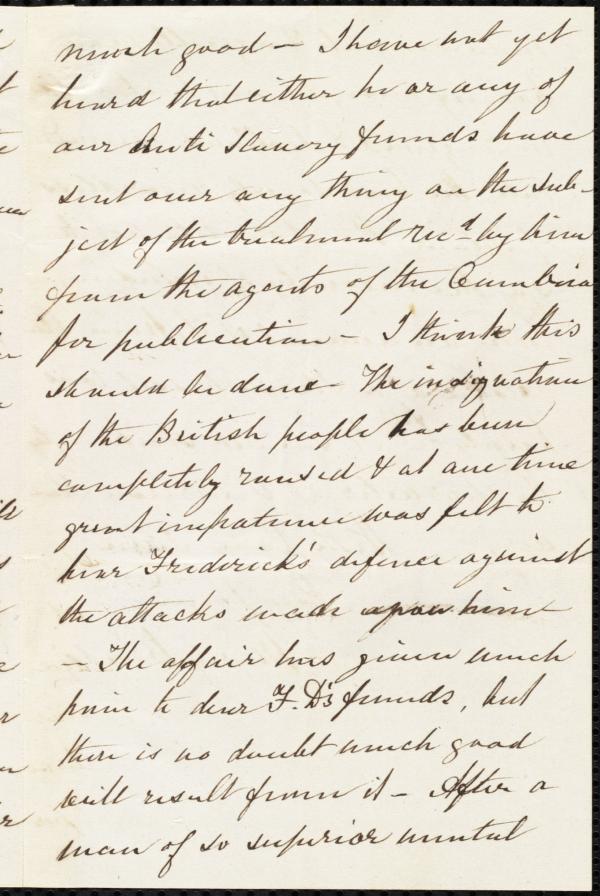 much good – I have not yet
heard that either he or any of
our Anti Slavery friends have
sent over any thing on the sub-
ject of the treatment recd. by him
from the agents of the Cambria
for publication – I think this
should be done – The indignation
of the British people has been
completely roused & at one time
great impatience was felt to
hear Frederick's defence against
the attacks made upon him –
– The affair has given much
pain to dear F. D's friends, but
there is no doubt much good
will result from it – After a
man of so superior mental